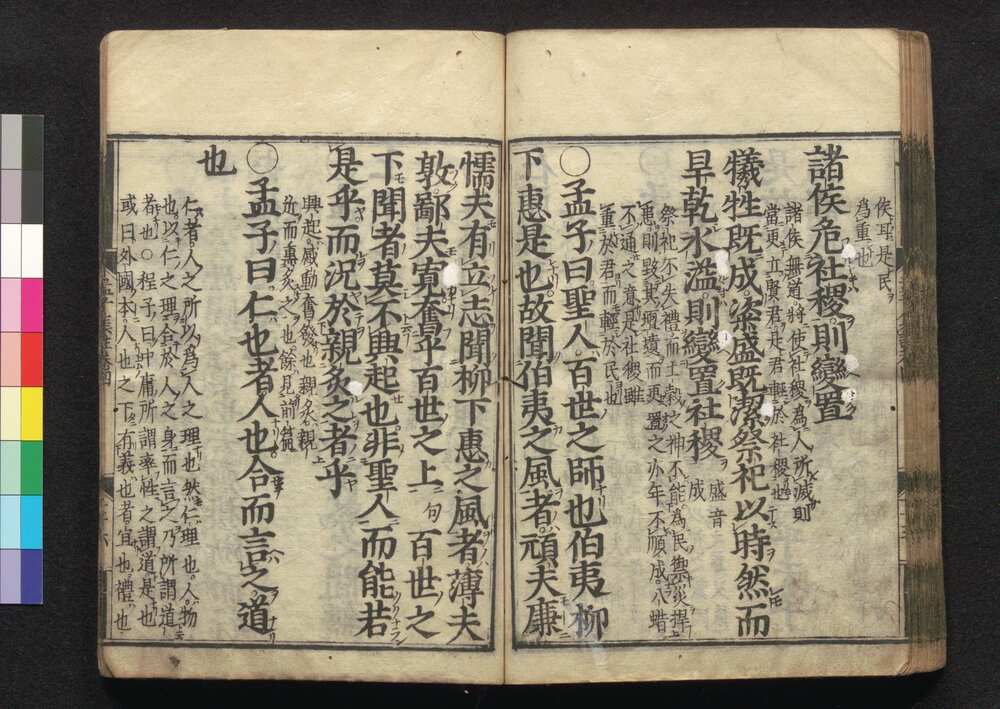 侯耳是民
為重也
諸侯危社稷則變置
諸侯無道將使社稷為人所滅則
當更立賢君是君輕於社稷也
犧牲既成粢盛既潔祭祀以時然而
旱乾水溢則變置社稷
盛音
成
祭祀不失禮而土穀之神不能為民禦災捍
患則毀其壇壝而更置之亦年不順成八蜡
不通之意是社稷雖
重於君而輕於民也
〇孟子曰聖人百世之師也伯夷柳
下惠是也故聞伯夷之風者頑夫廉
懦夫有立志聞柳下惠之風者薄夫
敦鄙夫寬奮乎百世之上句百世之
下聞者莫不興起也非聖人而能若
是乎而況於親炙之者乎
興起感動奮發也親炙親
近而熏炙之也餘見前篇
〇孟子曰仁也者人也合而言之道
也
仁者人之所以為人之理也然仁理也人物
也以仁之理合於人之身而言之乃所謂道
者也〇程子曰中庸所謂率性之謂道是也
或曰外國本人也之下有義也者宜也禮也